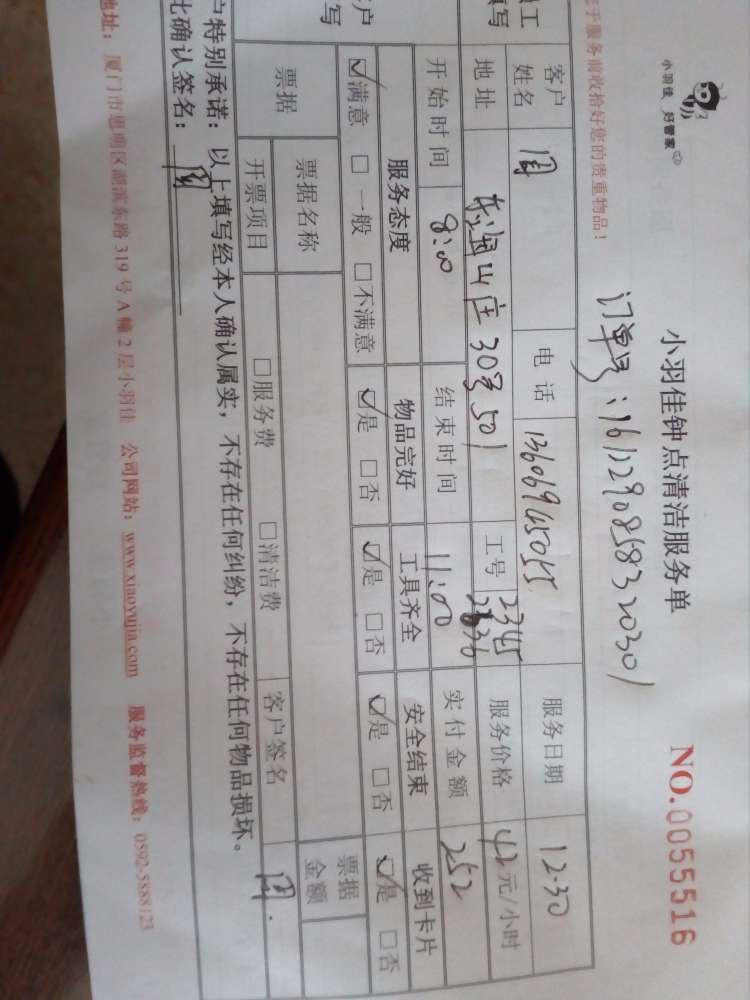 小羽佳 好管家
小羽佳钟点清洁服务单
NO.0055516
于服务前收拾好您的贵重物品！
客户姓名 周 电话 服务日期 12.30
地址 30号501 工号 2345 服务价格 42元/小时
开始时间 8:00 结束时间 11:00 实付金额 252
服务态度 物品完好 工具齐全 安全结束 收到卡片
☑满意 □一般 □不满意 ☑是 □否 ☑是 □否 ☑是 □否 ☑是 □否
票据 票据名称 票据金额
开票项目 □服务费 □清洁费 客户签名 周.
户特别承诺：以上填写经本人确认属实，不存在任何纠纷，不存在任何物品损坏。
比确认签名：周
地址：厦门市思明区湖滨东路319号A幢2层小羽佳 公司网站：www.xiaoyujia.com 服务监督热线：0592-5888123